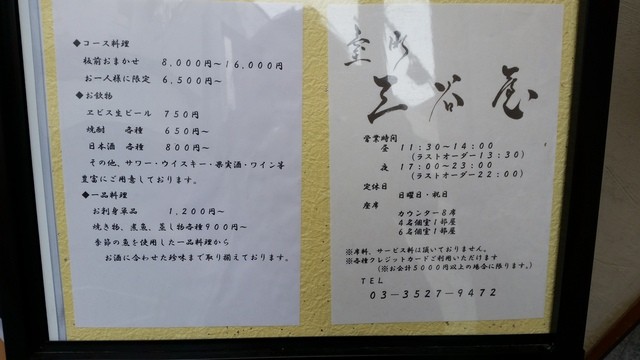 ◆コース料理
板前おまかせ 8,000円~16,000円
お一人様に限定 6,500円~
◆お飲物
ヱビス生ビール 750円
焼酎 各種 650円~
日本酒 各種 800円~
その他、サワー・ウイスキー・果実酒・ワイン等
豊富にご用意しております。
◆一品料理
お刺身単品 1,200円~
焼き物、煮魚、蒸し物各種900円~
季節の魚を使用した一品料理から
お酒に合わせた珍味まで取り揃えております。
室町
三谷屋
営業時間
昼 11:30~14:00
(ラストオーダー13:30)
夜 17:00~23:00
(ラストオーダー22:00)
定休日
日曜日・祝日
座席
カウンター8席
4名個室1部屋
6名個室1部屋
※席料、サービス料は頂いておりません。
※各種クレジットカードご利用いただけます
(※お会計5000円以上の場合に限ります。)
TEL
03-3527-9472